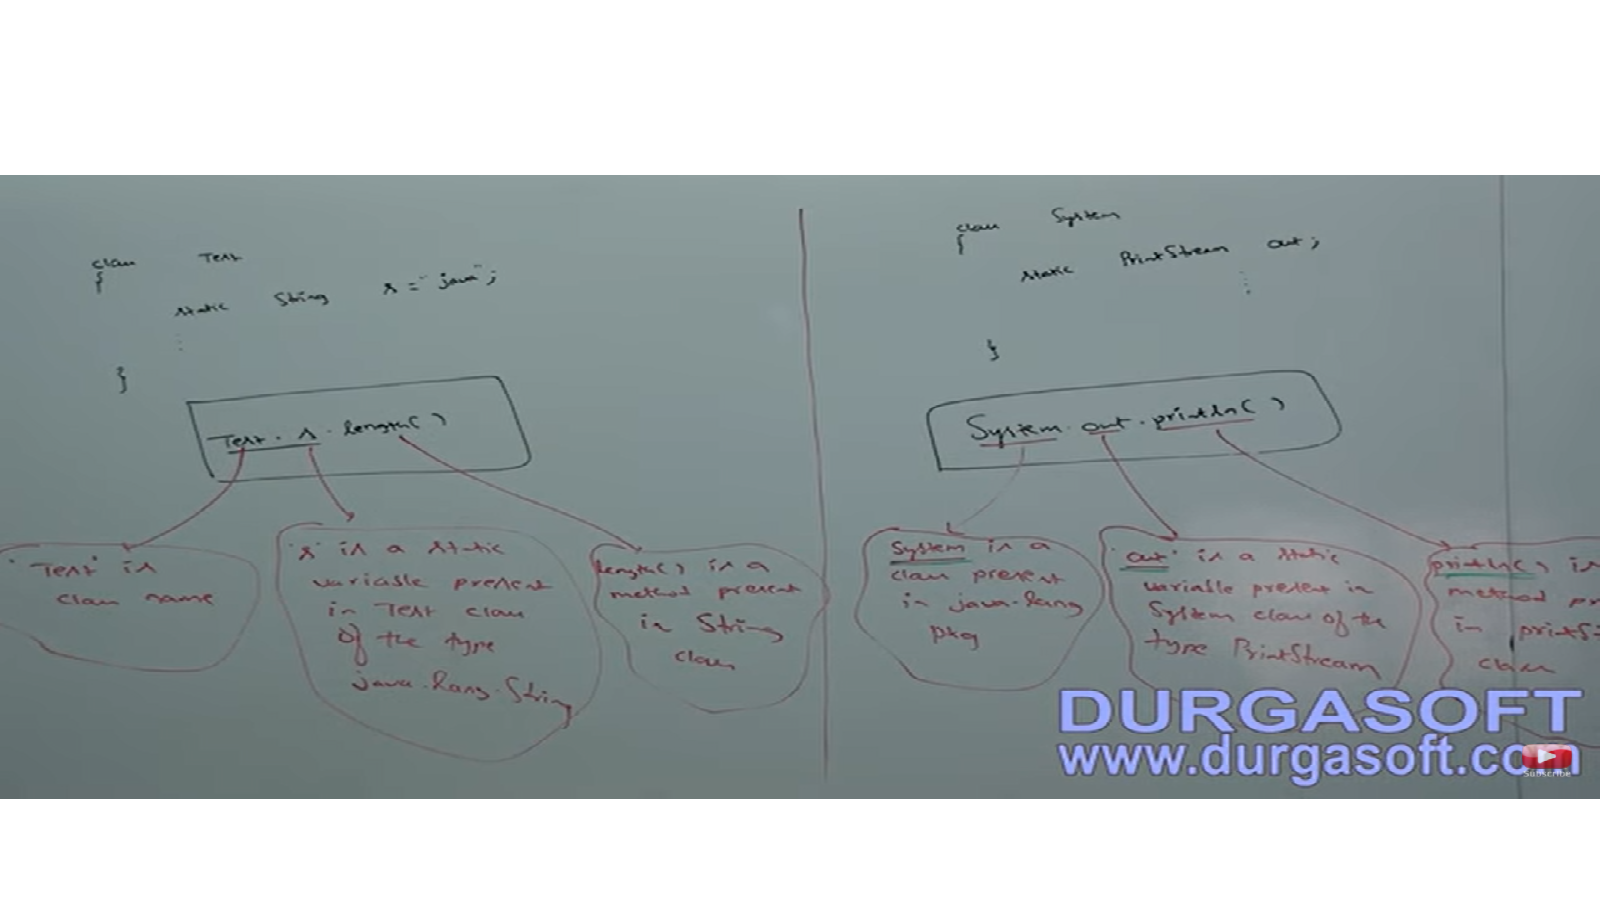 class Test
{
static String s = "java";
}
Test.s.length()
'Test' is
class name
's' is a static
variable present
in Test class
of the type
java.lang.String
length() is a
method present
in String
class
class System
{
static PrintStream out;
}
System.out.println()
System is a
class present
in java.lang
pkg
'out' is a static
variable present in
System class of the
type PrintStream
println() is
method pr
in printS
class
DURGASOFT
www.durgasoft.com
Subscribe